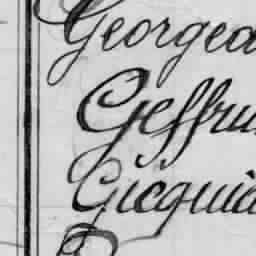 Georgea
Geffru
Gicquia